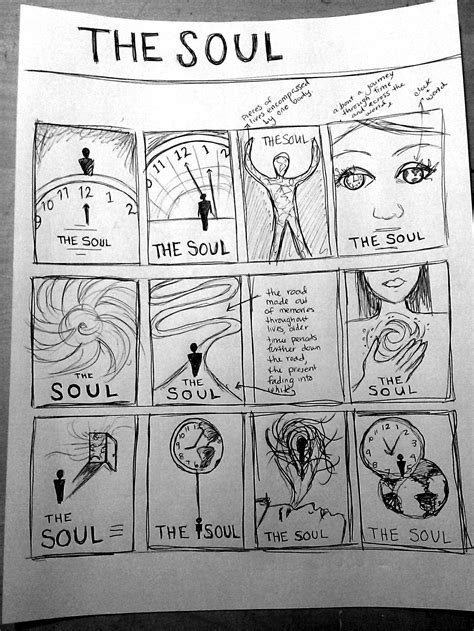 THE SOUL
pieces of
lives encompassed
by one body
about a journey
through time
and across the
world
clock
world
11 12 1
10 2
THE SOUL
11 12 1
THE SOUL
THE SOUL
THE SOUL
THE
SOUL
THE
SOUL
the road
made out
of memories
throughout
lives, older
time periods
further down
the road,
the present
fading into
white
THE
SOUL
THE
SOUL
THE SOUL
THE SOUL
THE SOUL